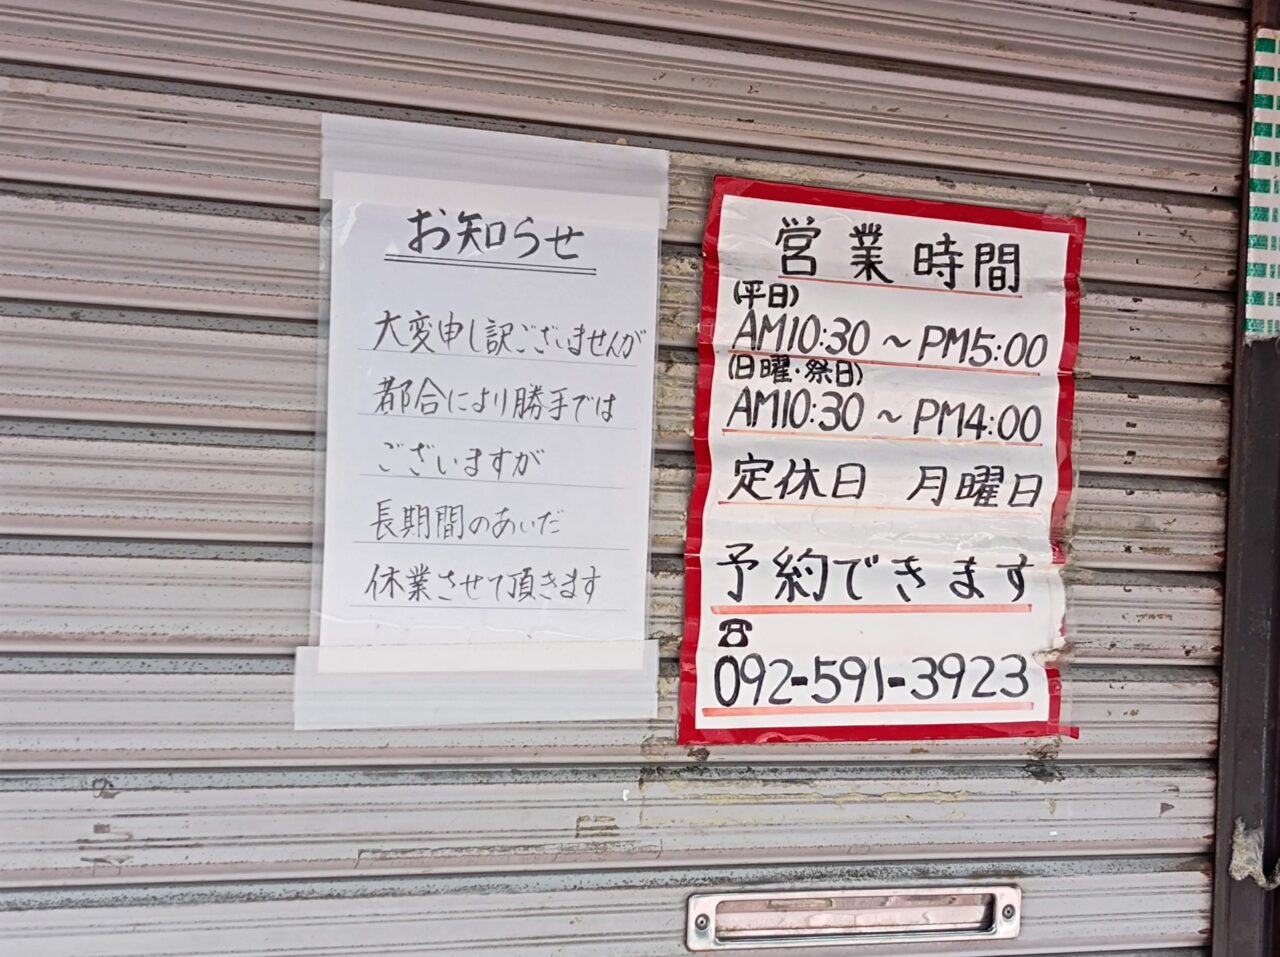 お知らせ
大変申し訳ございませんが
都合により勝手では
ございますが
長期間のあいだ
休業させて頂きます
営業時間
(平日)
AM10:30～PM5:00
(日曜・祭日)
AM10:30～PM4:00
定休日 月曜日
予約できます
☎
092-591-3923